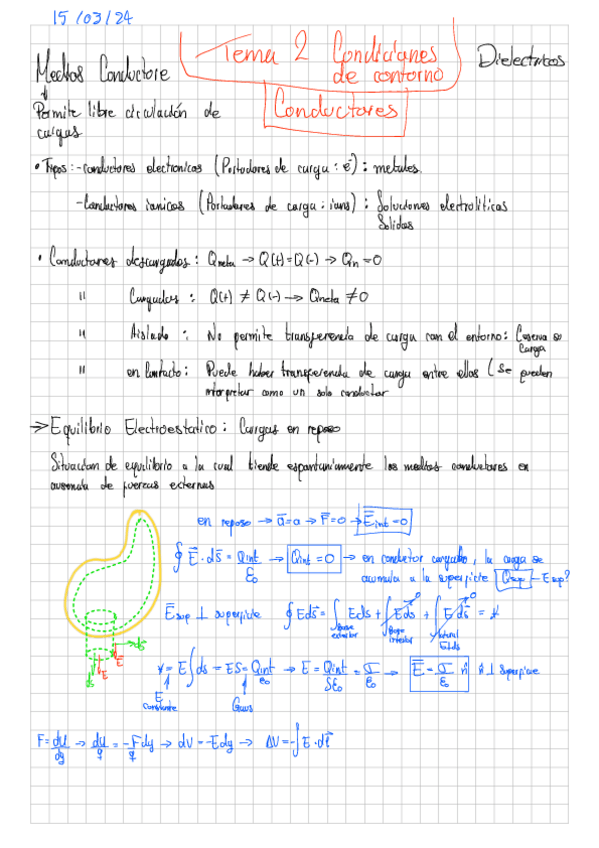 15/03/24
Tema 2 Condiciones de contorno
Dielectricos
Conductores
Medios Conductore
Permite libre circulación de
cargas
• Tipos: - conductores electronicos (Portadores de carga: e⁻): metales.
- Conductores ionicos (Portadores de carga: ions): Soluciones electrolíticas
Solidas
• Conductores descargados: Qneta → Q(+) = Q(-) → Qn = 0
" Cargados: Q(+) ≠ Q(-) → Qneta ≠ 0
" Aislado: No permite transferencia de carga con el entorno: Conserva su
Carga
" en Contacto: Puede haber transferencia de carga entre ellos (Se pueden
interpretar como un solo conductor
→ Equilibrio Electroestatico: Cargas en reposo
Situacion de equilibrio a la cual tiende espontaniamente los medios conductores en
ausencia de fuerzas externas
en reposo → a⃗ = 0 → F⃗ = 0 → E⃗int = 0
∮ E⃗ · ds⃗ = Qint/ε₀ → Qint = 0 → en conductor cargado, la carga se
acumula a la superficie Qsup - Esup?
E⃗sup ⊥ superficie ∮ Eds⃗ = ∫ Eds + ∫ Eds + ∫ E ds⃗ = *
Base exterior
Base interior
lateral
E⊥ds
* = E∫ds = ES = Qint/ε₀ → E = Qint/Sε₀ = σ/ε₀ → E⃗ = σ/ε₀ n̂ n̂ ⊥ superficie
E constante
Gauss
ds
E
E
ds
F = dU/dy → dU/q = -Fdy/q → dV = -Edy → ΔV = -∫E·dl⃗